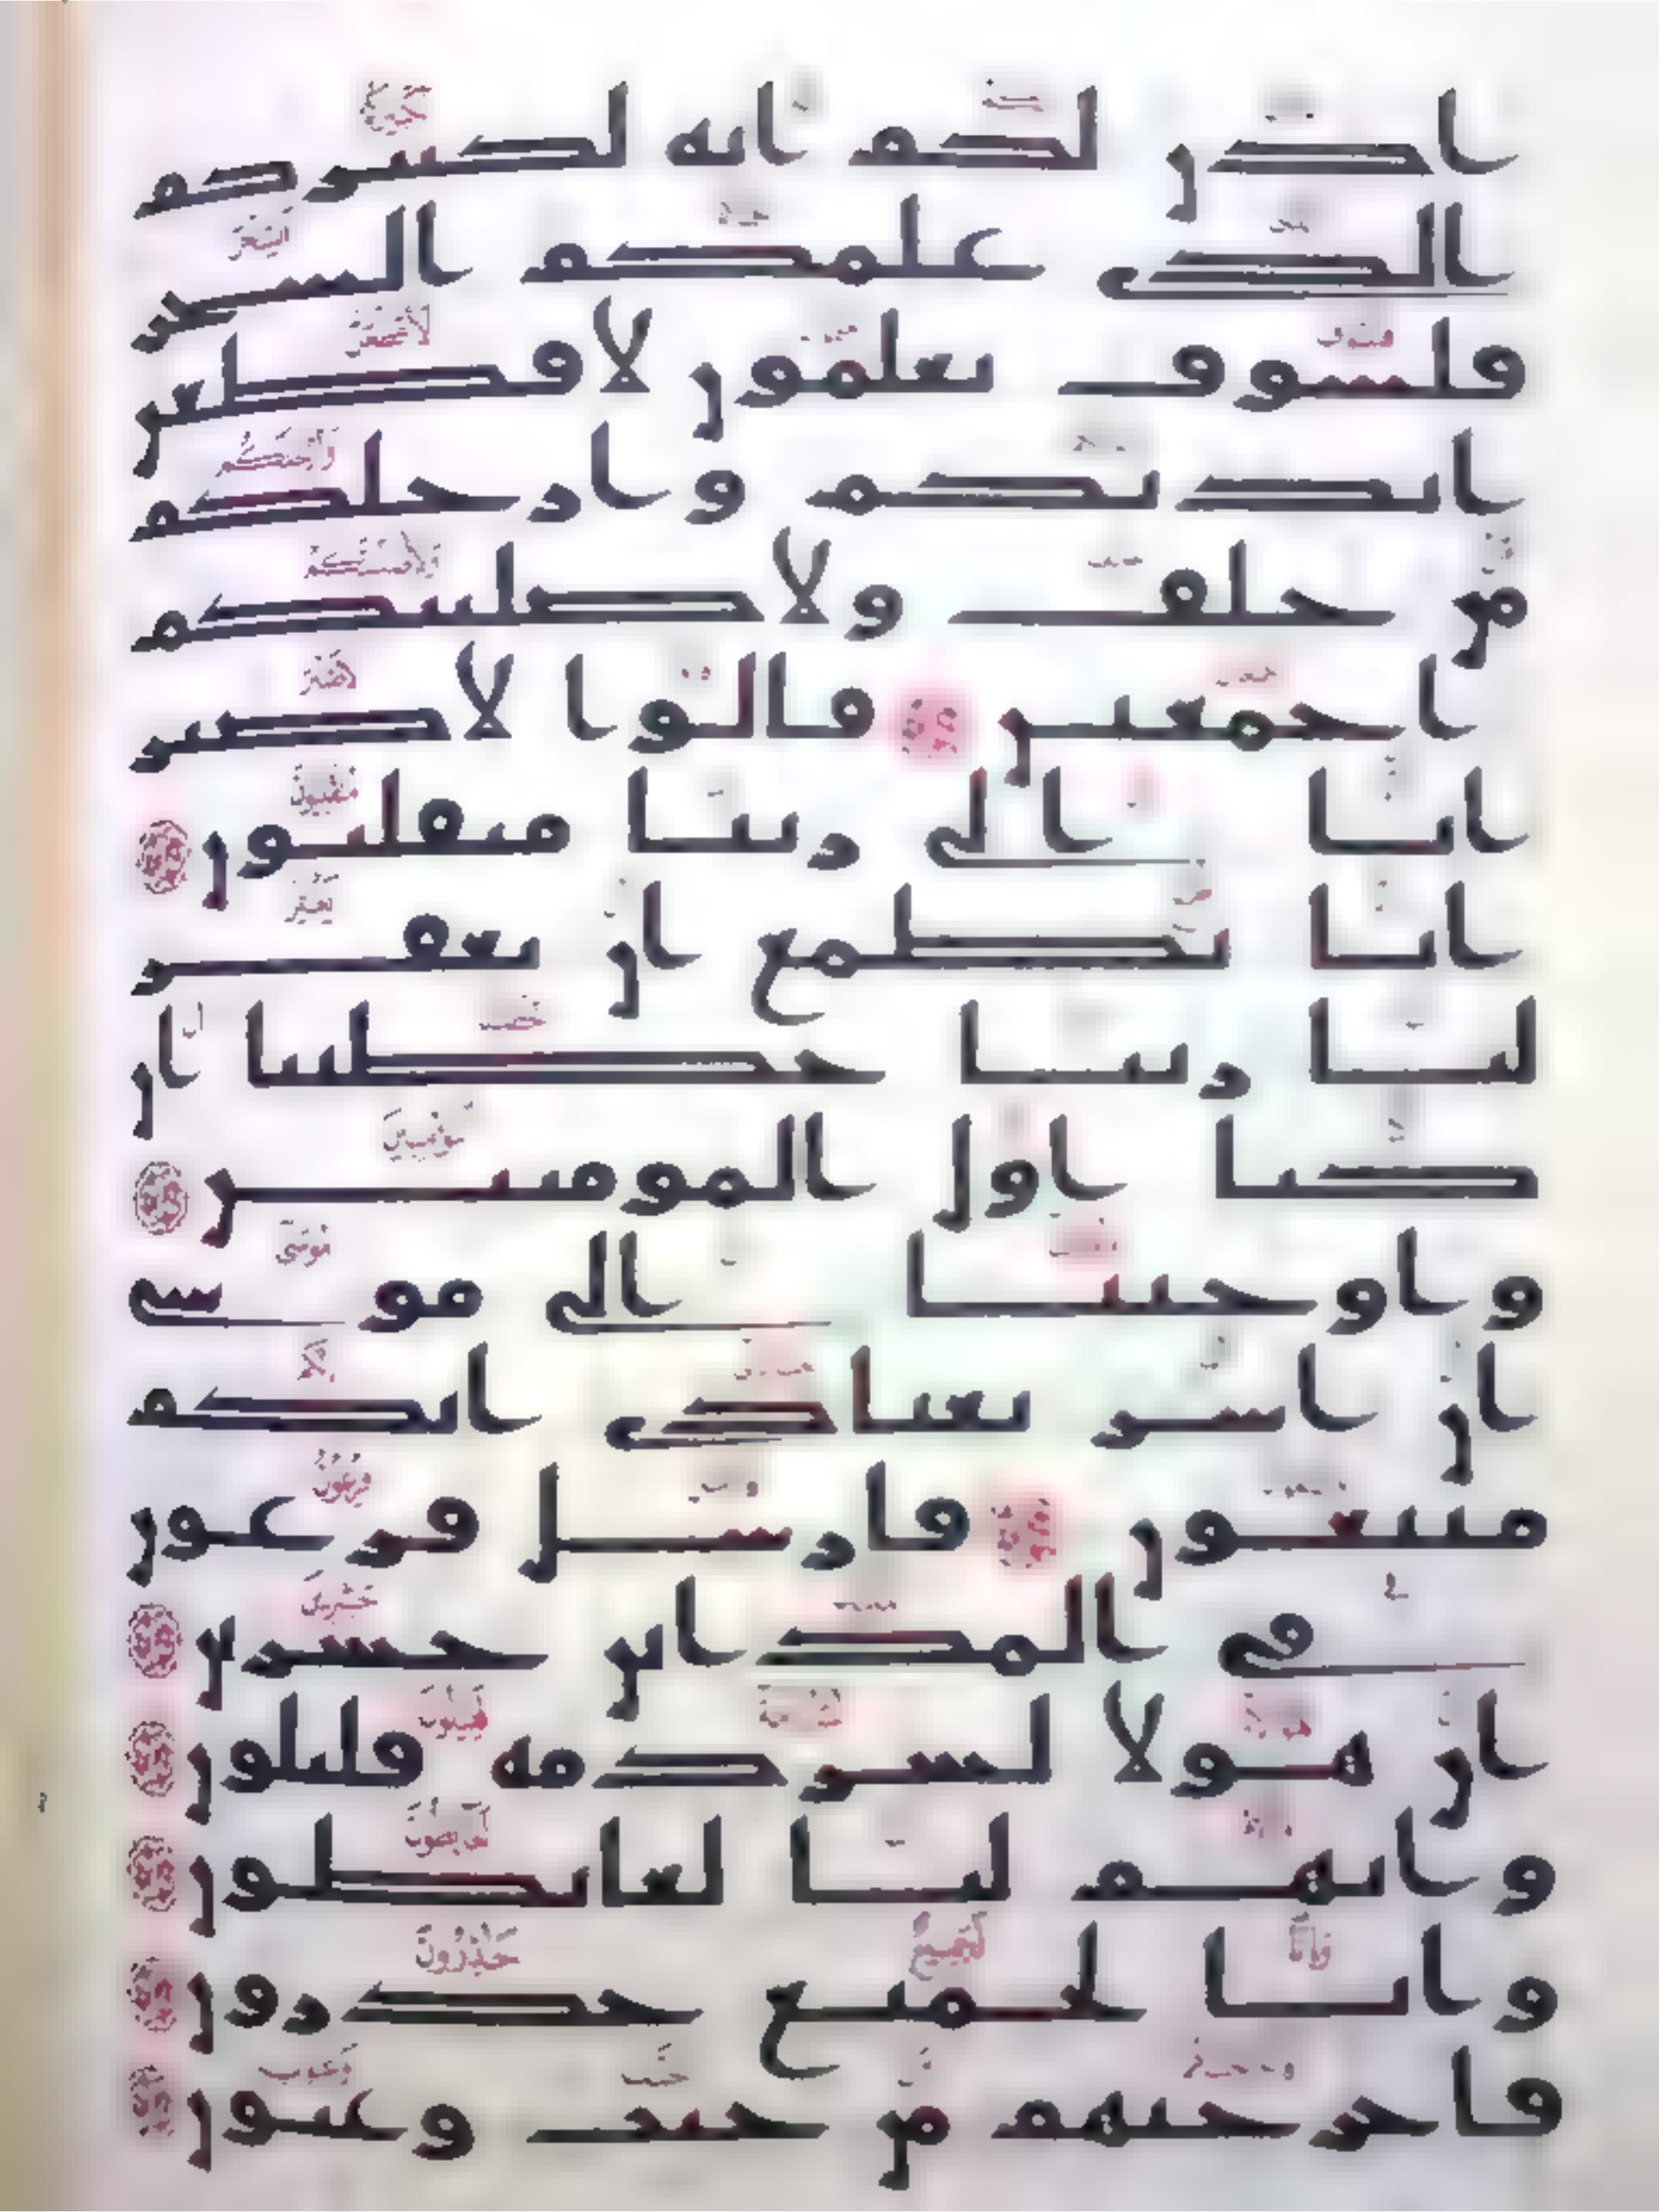 اذن لكم انه لكبيركم
الذي علمكم السحر
فلسوف تعلمون لاقطعن
ايديكم وارجلكم
من خلف ولاصلبنكم
اجمعين قالوا لا ضير
انا الى ربنا منقلبون
انا نطمع ان يغفر
لنا ربنا خطينا ان
كنا اول المومنين
واوحينا الى موسى
ان اسر بعبادي انكم
متبعون فارسل فرعون
في المداين حشرين
ان هولا لشرذمه قليلون
وانهم لنا لغايظون
وانا لجميع حذرون
فاخرجنهم من جنت وعيون